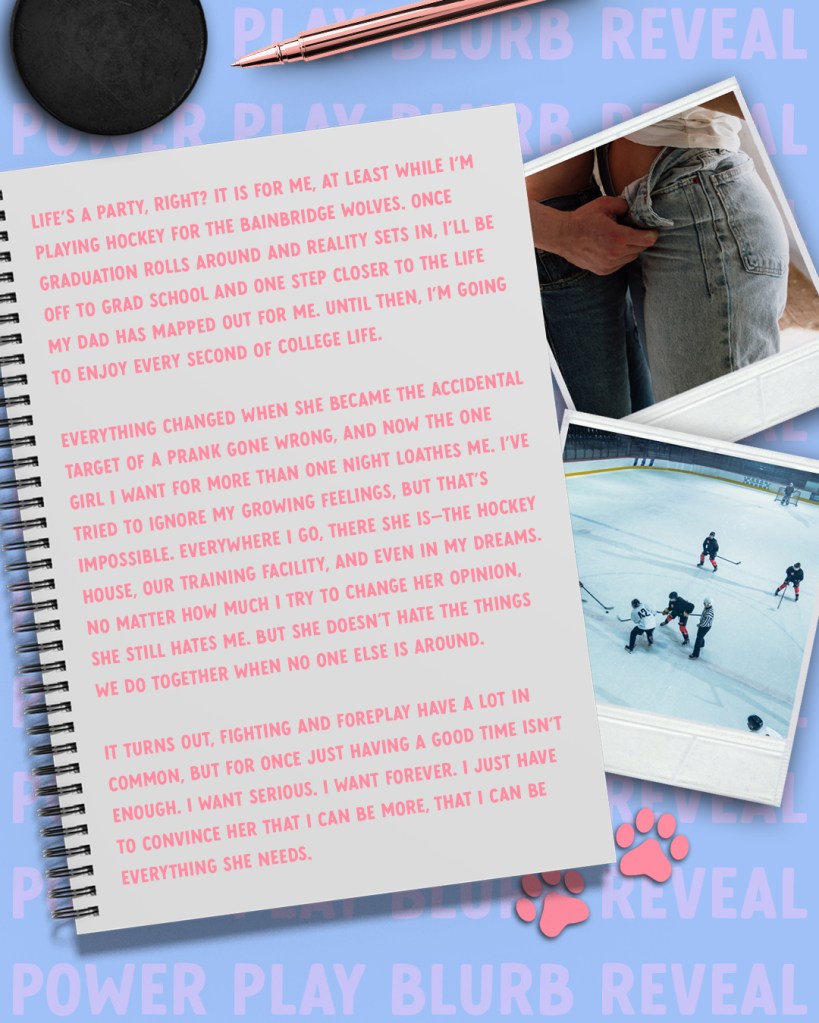 POWER PLAY BLURB REVEAL
POWER PLAY BLURB REVEAL
LIFE'S A PARTY, RIGHT? IT IS FOR ME, AT LEAST WHILE I'M
PLAYING HOCKEY FOR THE BAINBRIDGE WOLVES. ONCE
GRADUATION ROLLS AROUND AND REALITY SETS IN, I'LL BE
OFF TO GRAD SCHOOL AND ONE STEP CLOSER TO THE LIFE
MY DAD HAS MAPPED OUT FOR ME. UNTIL THEN, I'M GOING
TO ENJOY EVERY SECOND OF COLLEGE LIFE.
EVERYTHING CHANGED WHEN SHE BECAME THE ACCIDENTAL
TARGET OF A PRANK GONE WRONG, AND NOW THE ONE
GIRL I WANT FOR MORE THAN ONE NIGHT LOATHES ME. I'VE
TRIED TO IGNORE MY GROWING FEELINGS, BUT THAT'S
IMPOSSIBLE. EVERYWHERE I GO, THERE SHE IS—THE HOCKEY
HOUSE, OUR TRAINING FACILITY, AND EVEN IN MY DREAMS.
NO MATTER HOW MUCH I TRY TO CHANGE HER OPINION,
SHE STILL HATES ME. BUT SHE DOESN'T HATE THE THINGS
WE DO TOGETHER WHEN NO ONE ELSE IS AROUND.
IT TURNS OUT, FIGHTING AND FOREPLAY HAVE A LOT IN
COMMON, BUT FOR ONCE JUST HAVING A GOOD TIME ISN'T
ENOUGH. I WANT SERIOUS. I WANT FOREVER. I JUST HAVE
TO CONVINCE HER THAT I CAN BE MORE, THAT I CAN BE
EVERYTHING SHE NEEDS.
PLAY BLURB REVEAL
POWER PLAY BLURB REVEAL